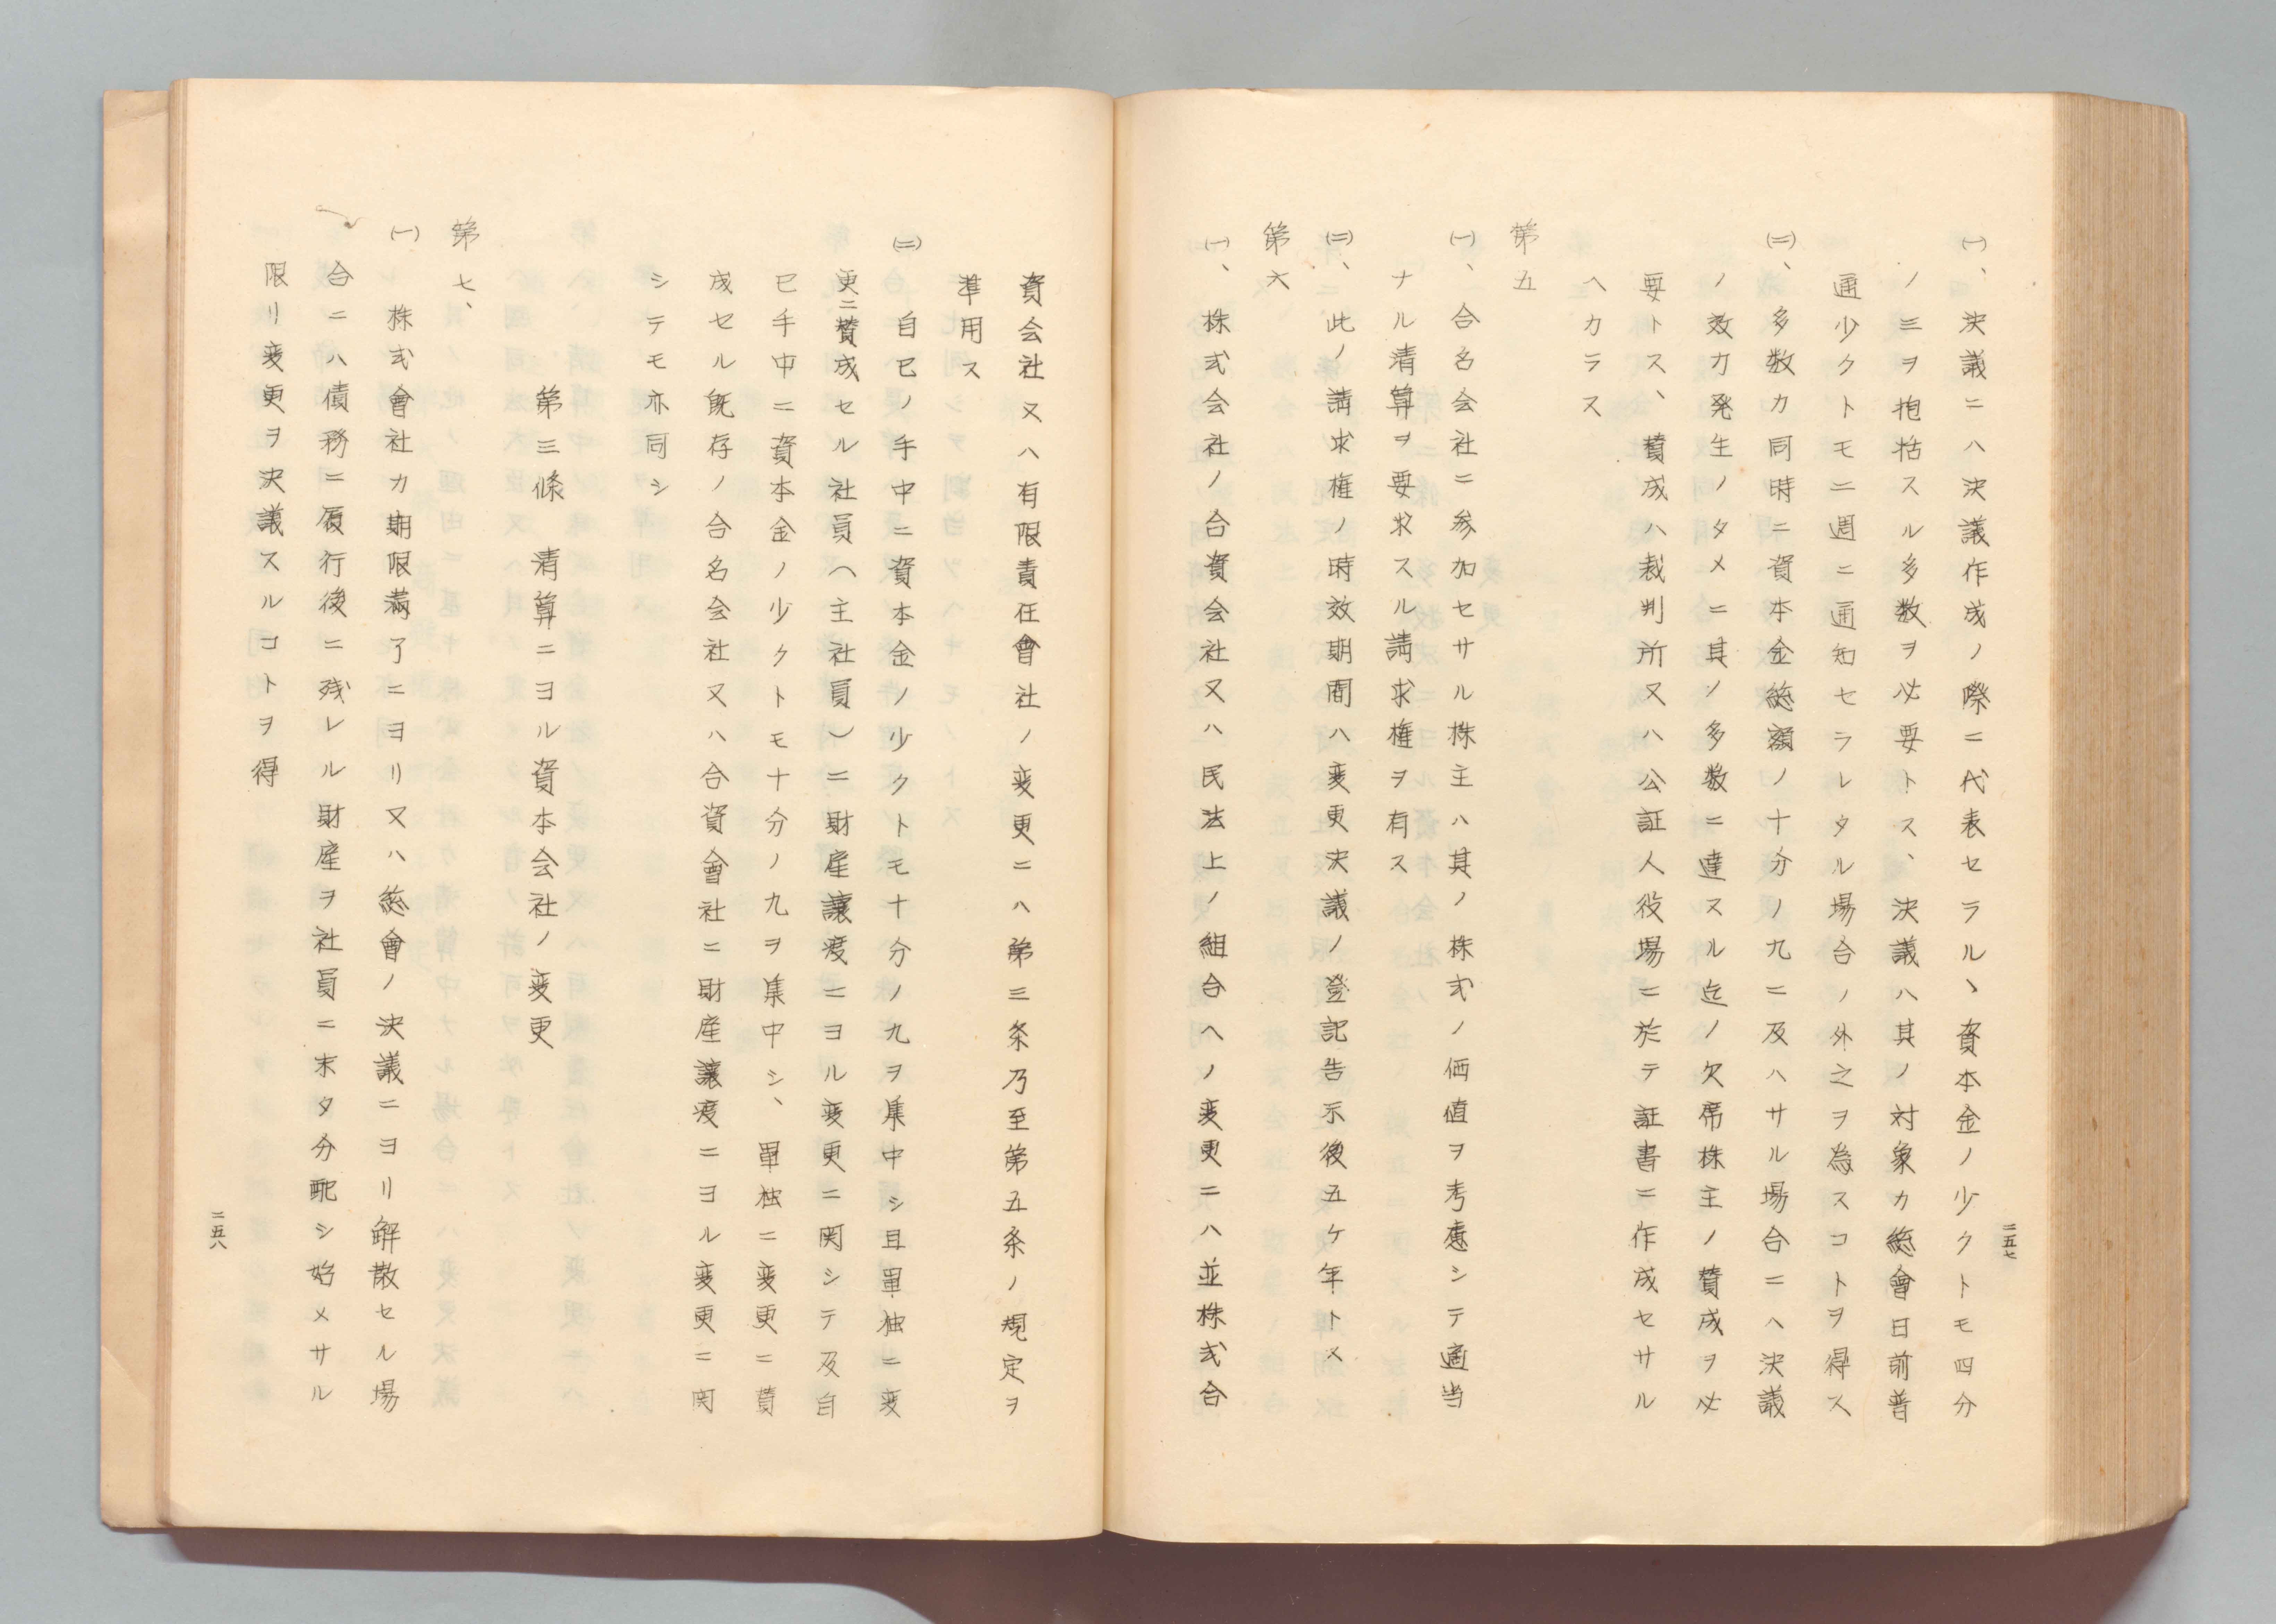 二五七
㈠、決議ニハ決議作成ノ際ニ代表セラルヽ資本金ノ少クトモ四分
ノ三ヲ抱括スル多数ヲ必要トス、決議ハ其ノ対象カ総會日前普
通少クトモ二週ニ通知セラレタル場合ノ外之ヲ為スコトヲ得ス
㈡、多数カ同時ニ資本金総額ノ十分ノ九ニ及ハサル場合ニハ決議
ノ效力発生ノタメニ其ノ多数ニ達スル迄ノ欠席株主ノ賛成ヲ必
要トス、賛成ハ裁判所又ハ公証人役場ニ於テ証書ニ作成セサル
ヘカラス
第五
㈠、合名会社ニ参加セサル株主ハ其ノ株式ノ価値ヲ考慮シテ適当
ナル清算ヲ要求スル請求権ヲ有ス
㈡、此ノ請求権ノ時效期間ハ変更決議ノ登記告示後五ケ年トス
第六
㈠、株式会社ノ合資会社又ハ民法上ノ組合ヘノ変更ニハ並株式合
資会社又ハ有限責任會社ノ変更ニハ第三条乃至第五条ノ規定ヲ
準用ス
㈡　自己ノ手中ニ資本金ノ少クトモ十分ノ九ヲ集中シ且單独ニ変
更ニ賛成セル社員（主社員）ニ財産譲渡ニヨル変更ニ関シテ及自
己手中ニ資本金ノ少クトモ十分ノ九ヲ集中シ、單独ニ変更ニ賛
成セル既存ノ合名会社又ハ合資會社ニ財産譲渡ニヨル変更ニ関
シテモ亦同シ
第三條　清算ニヨル資本会社ノ変更
第七、
㈠　株式會社カ期限満了ニヨリ又ハ総會ノ決議ニヨリ解散セル場
合ニハ債務ニ履行後ニ残レル財産ヲ社員ニ末タ分配シ始メサル
限リ変更ヲ決議スルコトヲ得
二五八